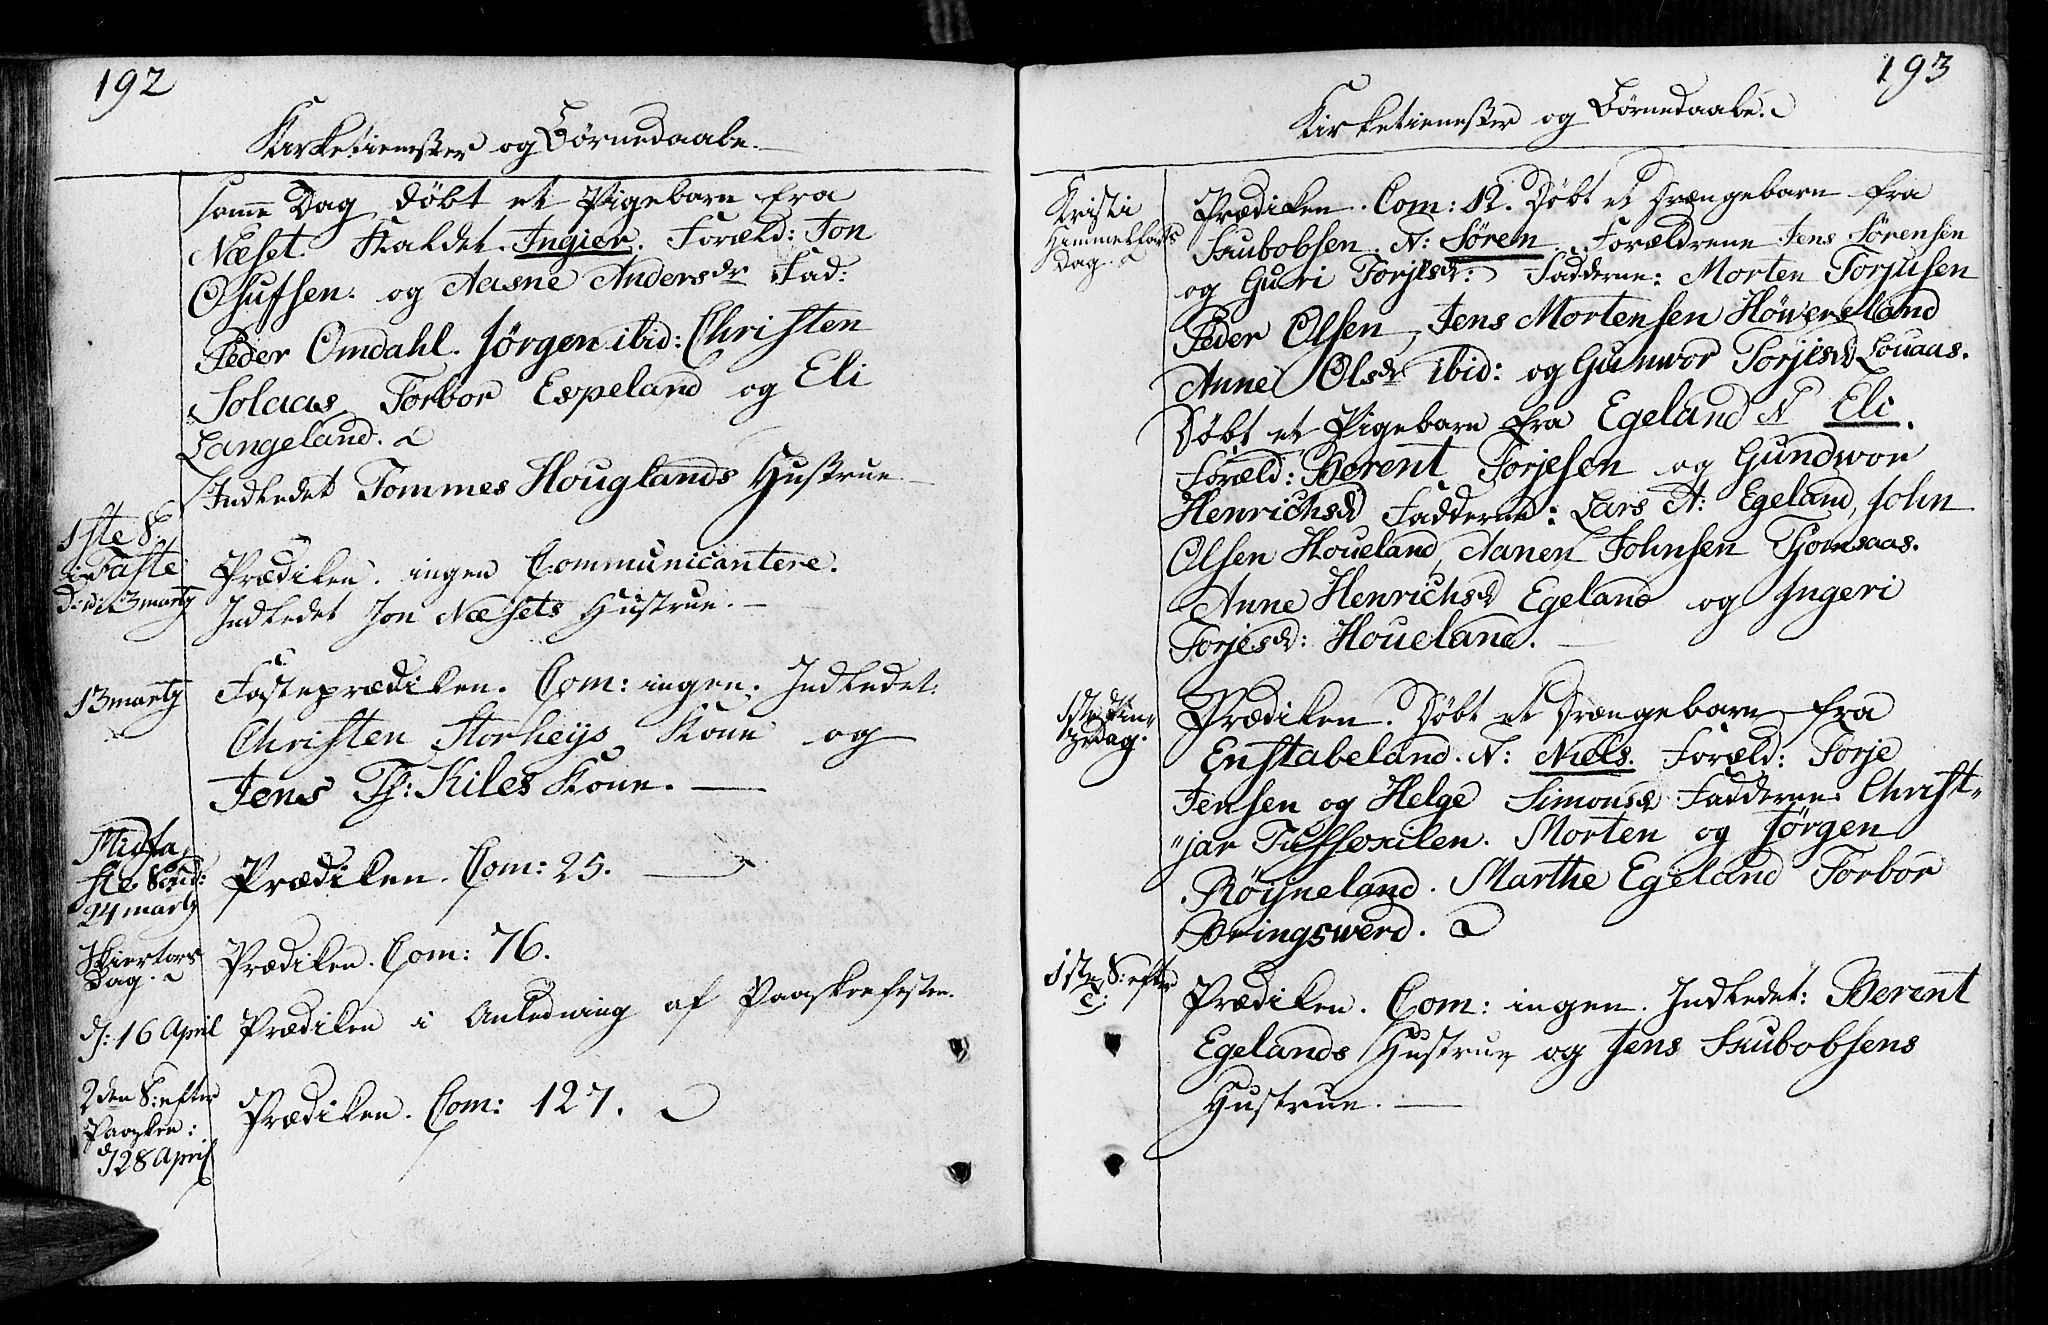 192
Kirketienester og Börnedaabe.
samme Dag döbt et Pigebarn fra
Næset. Kaldet Ingier. Foræld: Jon
Olufsen. og Aasne Andersdr Fad:
Peder Omdahl. Jörgen ibid: Christen
Solaas, Torbor Espeland og Eli
Langeland.
Indledet Tommes Houglands Hustrue
1ste S.
i Faste
Prædiken. ingen Communicantere.
Indledet Jon Næsets Hustrue.
13 martz
Fasteprædiken. Com: ingen. Indledet:
Christen Storheys Kone og
Jens Th: Kiles Kone.
Midfa,
ste Sönd:
24 martz
Prædiken. Com: 25.
Skiertors
Dag.
Prædiken. Com: 76.
D: 16 April
Prædiken i Anledning af Paaskefesten.
2den S: efter
Paasken:
d 28 April
Prædiken. Com: 127.
193
Kirketienester og Börnedaabe.
Kristi
Himmelfarts
Dag.
Prædiken. Com: 12. Döbt et Drængebarn fra
N: Sören. Forældrene Jens Sörensen
og Guri Torjesdr: Fadderne: Morten Torjusen
Peder Olsen, Jens Mortensen Höwerstland
Anne Olsdr ibid: og Gunwor Torjesd Louaas.
Döbt et Pigebarn fra Egeland N Eli.
Foræld: Berent Torjesen og Gundwor
Henrichsd Fadderne: Lars A: Egeland, John
Olsen Houeland, Aanen Johnsen Tjomsaas.
Anne Henrichsd Egeland og Ingeri
Torjesd: Houeland.
1ste Pin„
zedag.
Prædiken. Döbt et Drængebarn fra
Enstabeland. N: Niels. Foræld: Torje
Jensen og Helge Simonsd Fadderne: Christ„
„jan Morten og Jörgen
Röijneland. Marthe Egeland Torbor
Bringswerd.
1ste S: efter
T:
Prædiken. Com: ingen. Indledet: Berent
Egelands Hustrue og Jens Skubobsens
Hustrue.